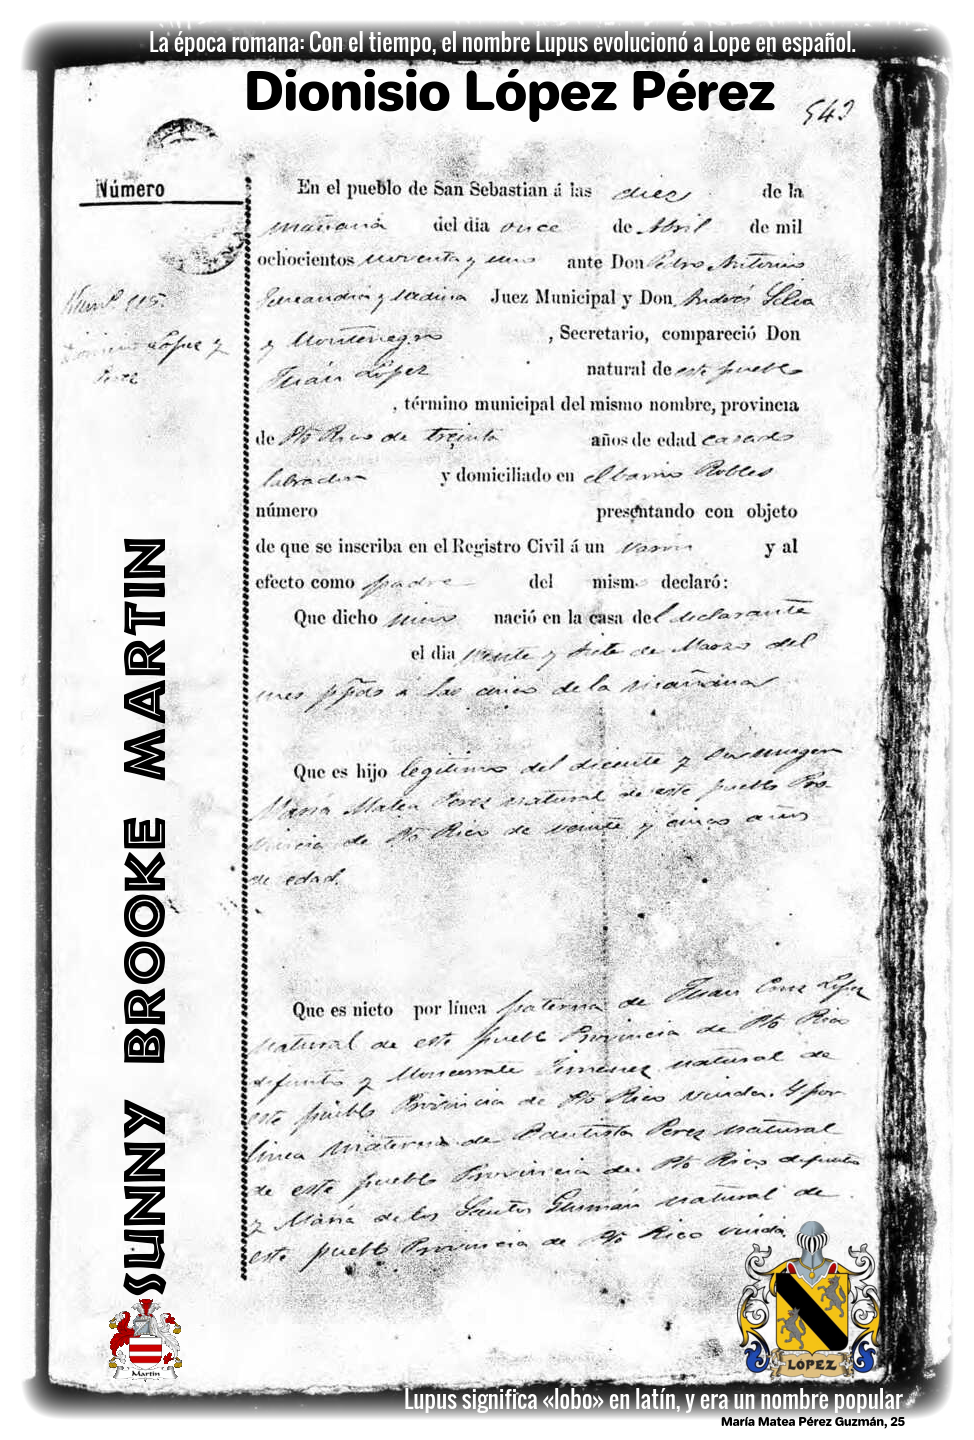 La época romana: Con el tiempo, el nombre Lupus evolucionó a Lope en español.
Dionisio López Pérez
542
Número
En el pueblo de San Sebastian á las diez de la
mañana del dia once de Abril de mil
ochocientos noventa y uno ante Don Pedro Antonio
y Medina Juez Municipal y Don Andrés
y Montenegro , Secretario, compareció Don
Juan López natural de este pueblo
, término municipal del mismo nombre, provincia
de Pto Rico de treinta años de edad casado
labrador y domiciliado en el barrio Robles
número presentando con objeto
de que se inscriba en el Registro Civil á un varon y al
efecto como padre del mismo declaró:
Que dicho niño nació en la casa del declarante
el dia veinte y siete de Marzo del
mes ppdo á las cinco de la mañana
Que es hijo legitimo del dicente y su muger
María Matea Perez natural de este pueblo Pro-
vincia de Pto Rico de veinte y cinco años
de edad.
Que es nieto por línea paterna de Juan Cruz López
natural de este pueblo Provincia de Pto Rico
difunto y Moncerrate Jimenez natural de
este pueblo Provincia de Pto Rico viuda. Y por
linea materna de Bautista Perez natural
de este pueblo Provincia de Pto Rico difunto
y María de los Santos Guzmán natural de
este pueblo Provincia de Pto Rico viuda.
López y
Perez
SUNNY BROOKE MARTIN
Martin
LOPEZ
Lupus significa «lobo» en latín, y era un nombre popular
María Matea Pérez Guzmán, 25